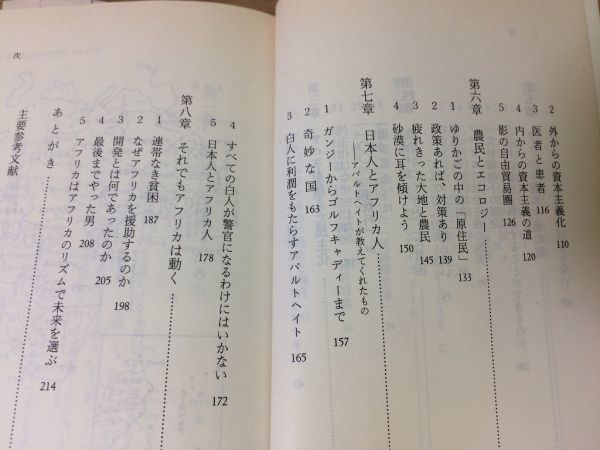 2 外からの資本主義化 110
3 医者と患者 116
4 内からの資本主義の道 120
5 影の自由貿易圏 126
第六章 農民とエコロジー
1 ゆりかごの中の「原住民」 133
2 政策あれば、対策あり 139
3 疲れきった大地と農民 145
4 砂漠に耳を傾けよう 150
第七章 日本人とアフリカ人
――アパルトヘイトが教えてくれたもの
1 ガンジーからゴルフキャディーまで 157
2 奇妙な国 163
3 白人に利潤をもたらすアパルトヘイト 165
4 すべての白人が警官になるわけにはいかない 172
5 日本人とアフリカ人 178
第八章 それでもアフリカは動く
1 連帯なき貧困 187
2 なぜアフリカを援助するのか 198
3 開発とは何であったのか 205
4 最後までやった男 208
5 アフリカはアフリカのリズムで未来を選ぶ 214
あとがき
主要参考文献
次